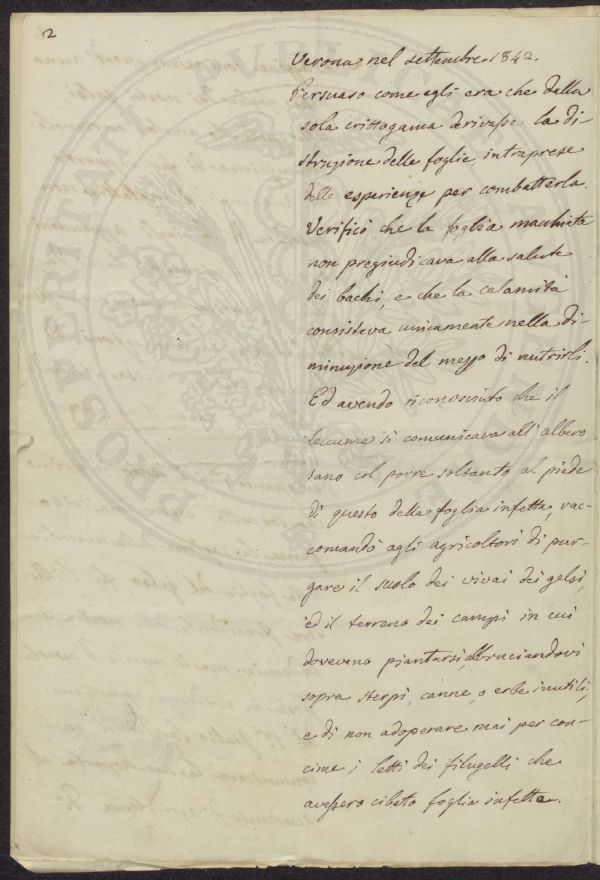 2
Verona nel settembre 1842.
Persuaso come egli era che dalla
sola crittogama derivasse la di-
struzione delle foglie, intraprese
delle esperienze per combatterla.
Verificò che la foglia macchiata
non pregiudicava alla salute
dei bachi, e che la calamità
consisteva unicamente nella di-
minuzione del mezzo di nutrirli.
Ed avendo riconosciuto che il
seccume si comunicava all'albero
sano col porre soltanto al piede
di questo della foglia infetta, rac-
comandò agli agricoltori di pur-
gare il suolo dei vivai dei gelsi,
ed il terreno dei campi in cui
dovevano piantarsi, abbruciandovi
sopra sterpi, canne, o erbe inutili,
e di non adoperare mai per con-
cime i letti dei filugelli che
avessero cibato foglia infetta.